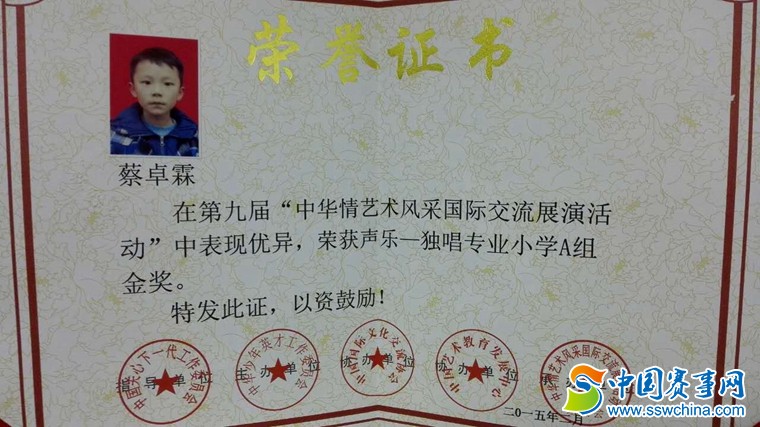 荣誉证书
蔡卓霖
在第九届“中华情艺术风采国际交流展演活
动”中表现优异，荣获声乐—独唱专业小学A组
金奖。
特发此证，以资鼓励！
中国关心下一代工作委员会
指导单位
主办单位
协办单位
中国艺术教育发展中心
协办单位
中华情艺术风采国际交流
二〇一五年二月
中国赛事网
www.sswchina.com